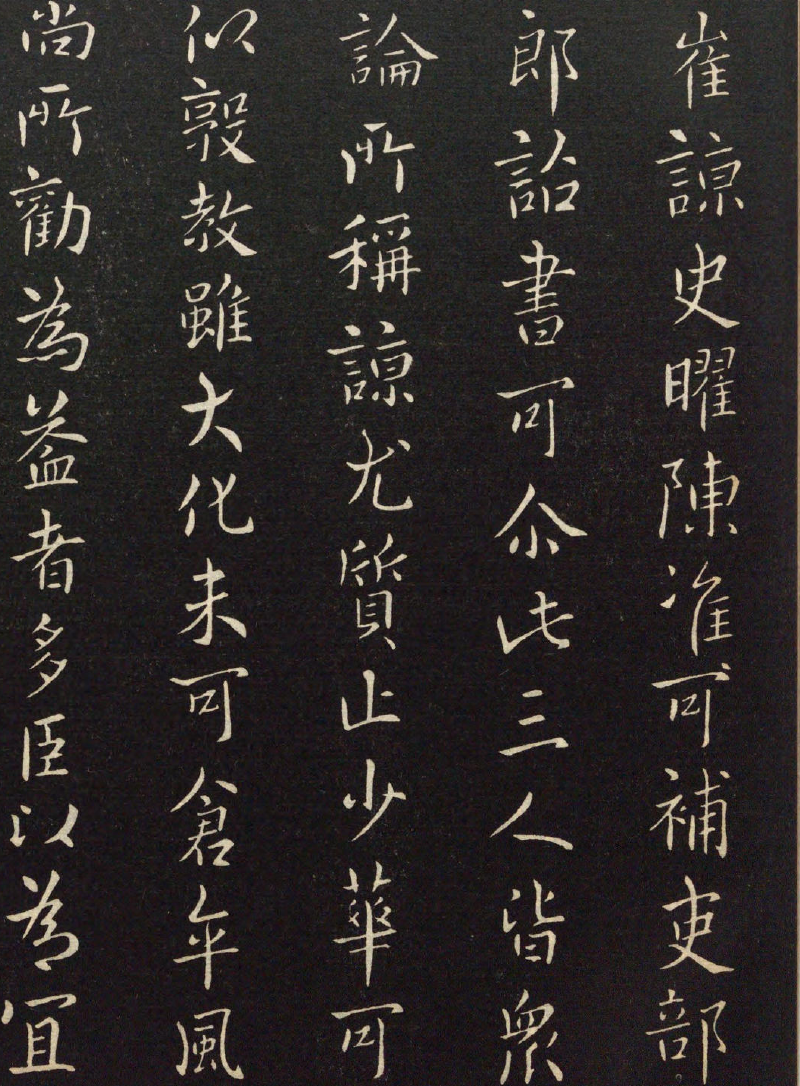 崔諒史曜陳淮可補吏部
郎詔書可尒此三人皆衆
論所稱諒尤質止少華可
以敦教雖大化未可倉卒風
尚所勸為益者多臣以為宜